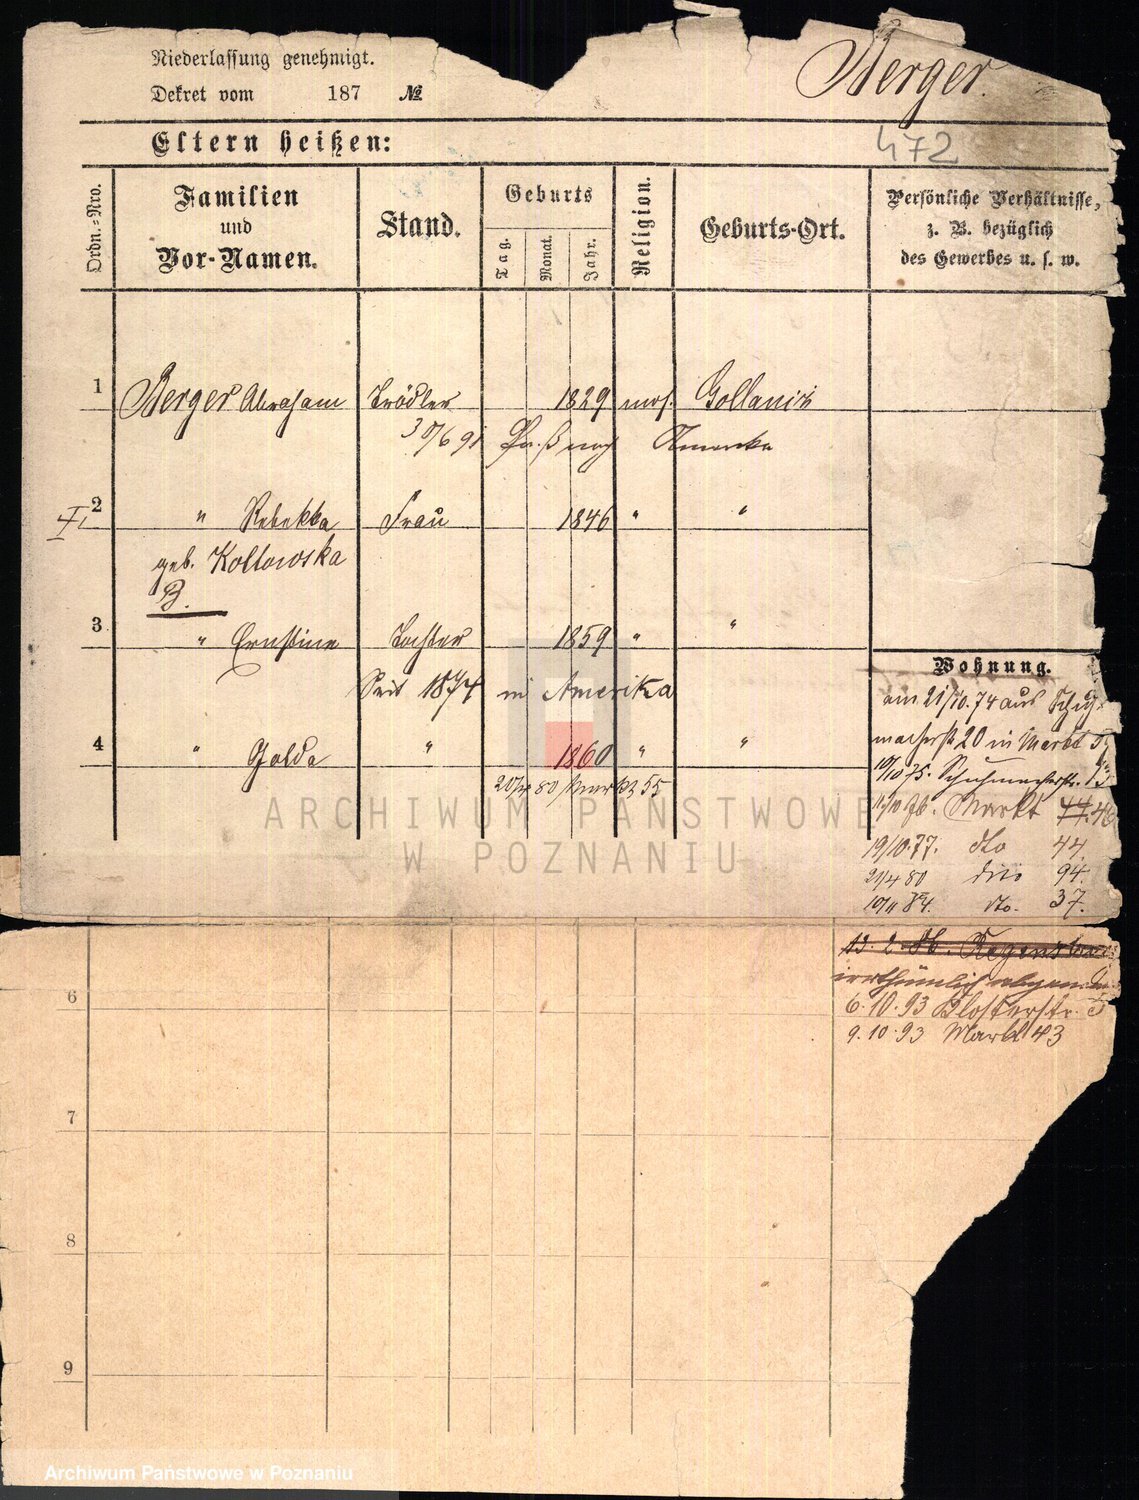 Niederlassung genehmigt.
Berger.
Dekret vom 187 №
Eltern heißen:
472
Ordn.-Nro.
Familien und Vor-Namen.
Stand.
Geburts
Tag.
Monat.
Jahr.
Religion.
Geburts-Ort.
Persönliche Verhältnisse,
z. B. bezüglich
des Gewerbes u. s. w.
1 Berger Abraham Trödler 1829 mos. Gollanz
30/6 91 Paß nach Amerika
2 " Rebekka Frau 1846 " "
geb. Koltowska
B.
3 " Ernstine Tochter 1859 " "
Seit 1874 in Amerika
4 " Golda " 1860 " "
80 Markt 55
Wohnung.
am 21/10.74 aus Schuh-
macherstr 20 in Markt
19/10 75. Schuhmacherstr. 13
Markt 44. 46
19/10.77. dto 44.
21/4 80 dito 94.
10/11 84. dto. 37.
irrthümlich
6.10.93 Klosterstr.
9.10.93 Markt 43
6
7
8
9
ARCHIWUM PAŃSTWOWE
W POZNANIU
Archiwum Państwowe w Poznaniu